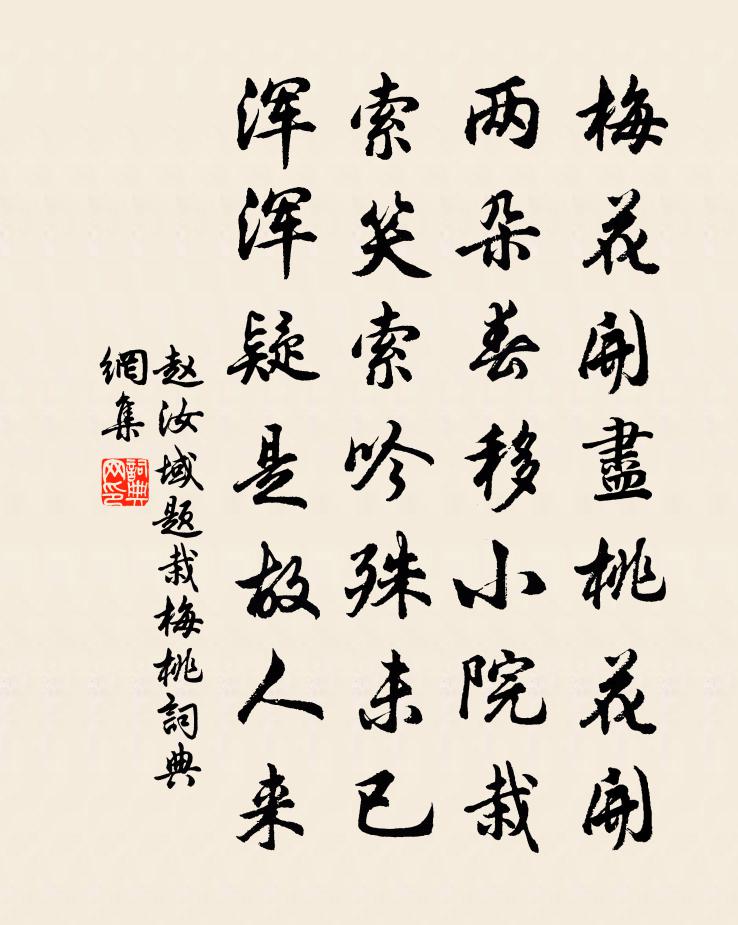 梅花開盡桃花開
两朵春移小院栽
索笑索吟殊未已
浑浑疑是故人来
赵汝域题栽梅桃詞典
網集
詞典网印